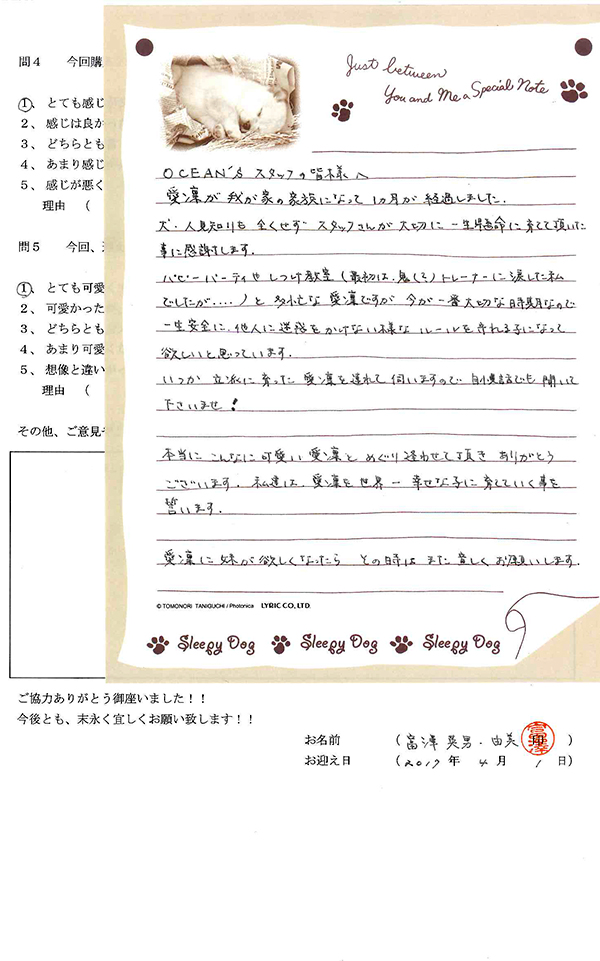 問4 今回購
①、とても感じ
2、感じは良か
3、どちらとも
4、あまり感じ
5、感じが悪く
理由 (
問5 今回、
①、とても可愛
2、可愛かった
3、どちらとも
4、あまり可愛
5、想像と違い
理由 (
その他、ご意見
Just between
You and Me a Special Note
OCEAN'S スタッフの皆様へ
愛凛が我が家の家族になって1ヵ月が経過しました.
犬・人見知りも全くせず スタッフさんが大切に一生懸命に育てて頂いた
事に感謝します.
パピーパーティや しつけ教室(最初は トレーナーに渡した私
でしたが....)と 多忙な 愛凛ですが 今が一番大切な時期なので
一生安全に.他人に迷惑をかけない様な ルールを守れる子になって
欲しいと思っています.
いつか 立派に育った 愛凛を連れて伺いますので 自慢話でも 聞いて
下さいませ!
本当に こんなに可愛い愛凛と めぐり逢わせて頂き ありがとう
ございます. 私達は.愛凛を世界一 幸せな子に育てていく事を
誓います.
愛凛に妹が欲しくなったら その時は また宜しくお願いします.
© TOMONORI TANIGUCHI / Photonica LYRIC CO., LTD.
Sleepy Dog Sleepy Dog Sleepy Dog
ご協力ありがとう御座いました!!
今後とも、末永く宜しくお願い致します!!
お名前 (富澤 英男・由美 印 )
お迎え日 (2017年 4月 1日)